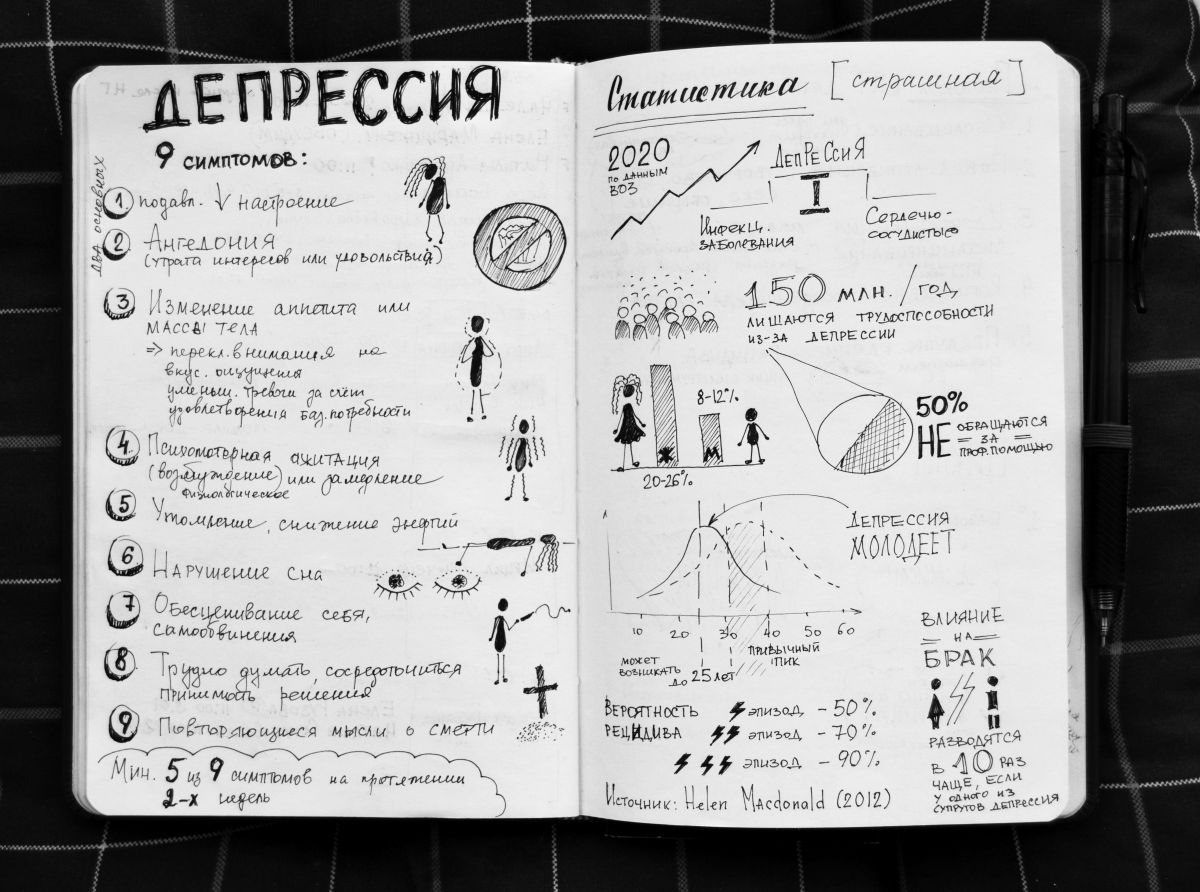 ДЕПРЕССИЯ
9 симптомов:
два основных
1 подавл. ↓ настроение
2 Ангедония
(утрата интересов или удовольствия)
3 Изменение аппетита или
массы тела
=> перекл. внимания на
вкус. ощущения
уменьш. тревоги за счёт
удовлетворения баз. потребности
4 Психомоторная ажитация
(возбуждение) или замедление
физиологическое
5 Утомление, снижение энергии
6 Нарушение сна
7 Обесценивание себя,
самообвинения
8 Трудно думать, сосредоточиться
принимать решения
9 Повторяющиеся мысли о смерти
Мин. 5 из 9 симптомов на протяжении
2-х недель
Статистика [страшная]
2020
по данным
ВОЗ
ДЕПРЕССИЯ
I
Инфекц.
заболевания
Сердечно-
сосудистые
150 млн. / год
лишаются трудоспособности
из-за депрессии
8-12%
Ж М
20-26%
50%
НЕ обращаются
за
проф. помощью
ДЕПРЕССИЯ
МОЛОДЕЕТ
10 20 30 40 50 60
может
возникать
до 25 лет
привычный
пик
Вероятность
рецидива
эпизод - 50%
эпизод - 70%
эпизод - 90%
Источник: Helen Macdonald (2012)
Влияние
на
БРАК
разводятся
в 10 раз
чаще, если
у одного из
супругов депрессия